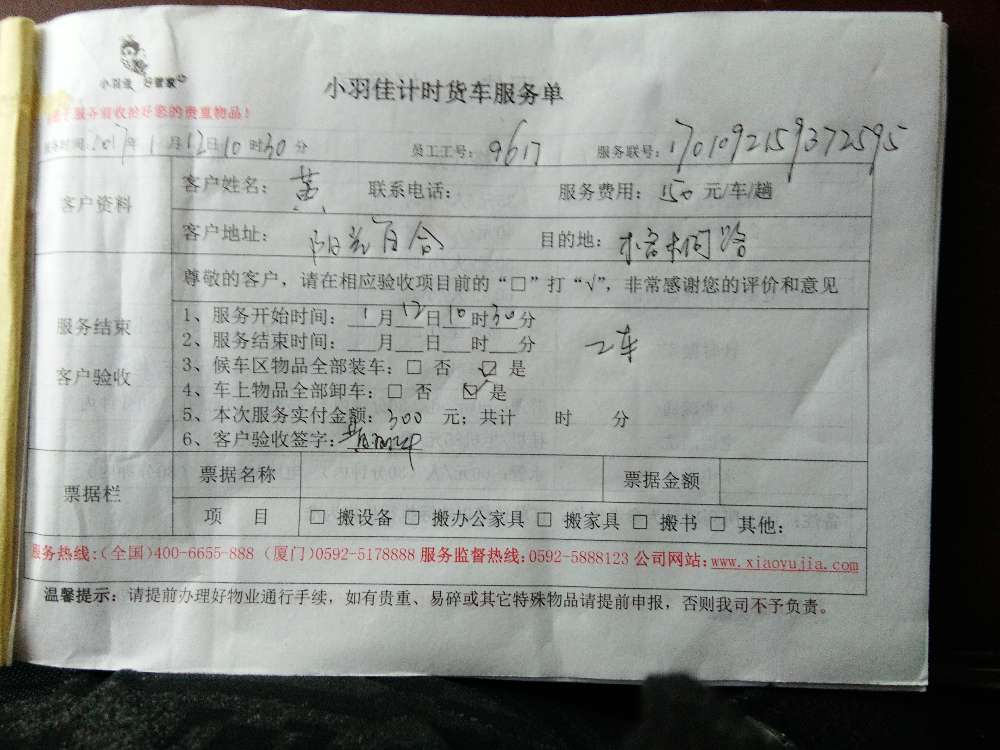 小羽佳 好管家
小羽佳计时货车服务单
服务前收拾好您的贵重物品！
服务时间：2017年1月12日10时30分 员工工号：9617 服务联号：1701092159372595
客户资料
客户姓名：黄 联系电话： 服务费用：150元/车/趟
客户地址：阳光百合 目的地：
尊敬的客户，请在相应验收项目前的“□”打“√”，非常感谢您的评价和意见
服务结束
客户验收
1、服务开始时间：1月12日10时30分
2、服务结束时间：___月___日___时___分 二车
3、候车区物品全部装车：□ 否 ☑ 是
4、车上物品全部卸车：□ 否 ☑ 是
5、本次服务实付金额：300 元；共计 时 分
6、客户验收签字：
票据栏
票据名称 票据金额
项 目 □ 搬设备 □ 搬办公家具 □ 搬家具 □ 搬书 □ 其他：
服务热线：(全国)400-6655-888 (厦门)0592-5178888 服务监督热线：0592-5888123 公司网站：www.xiaoyujia.com
温馨提示：请提前办理好物业通行手续，如有贵重、易碎或其它特殊物品请提前申报，否则我司不予负责。